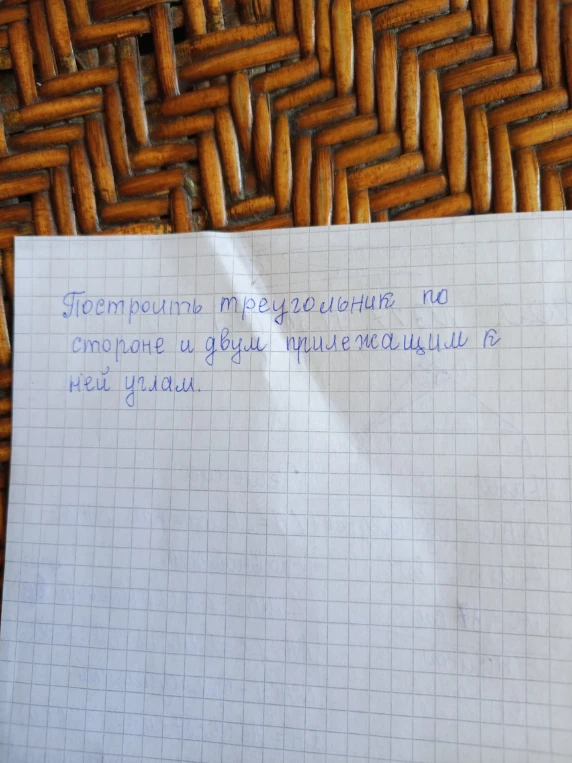 Построить треугольник по
стороне и двум прилежащим к
ней углам.